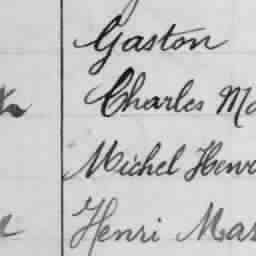 Gaston
Charles Ma
Michel Henr
Henri Mar